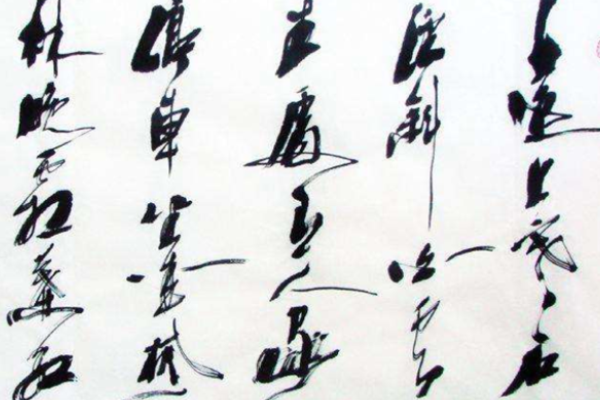 遠上寒山石
徑斜白雲
生處有人家
停車坐愛楓
林晚霜葉紅